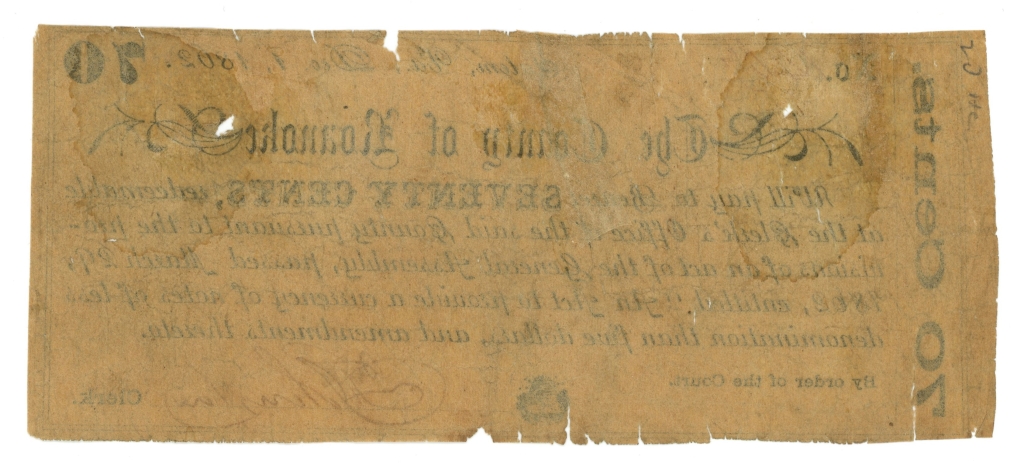 70 1862.
The County of Roanoke
Will pay to the SEVENTY CENTS, redeemable
at the Clerk's Office of the said County pursuant to the pro-
visions of an act of the General Assembly, passed March 29,
1862, entitled "An Act to provide a currency of notes of less
denomination than five dollars, and amendments thereto.
By order of the Court.
Clerk.
70 Cents.